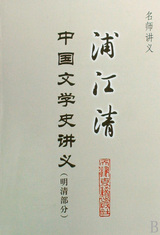 名师讲义
浦江清
中国文学史讲义
(明清部分)